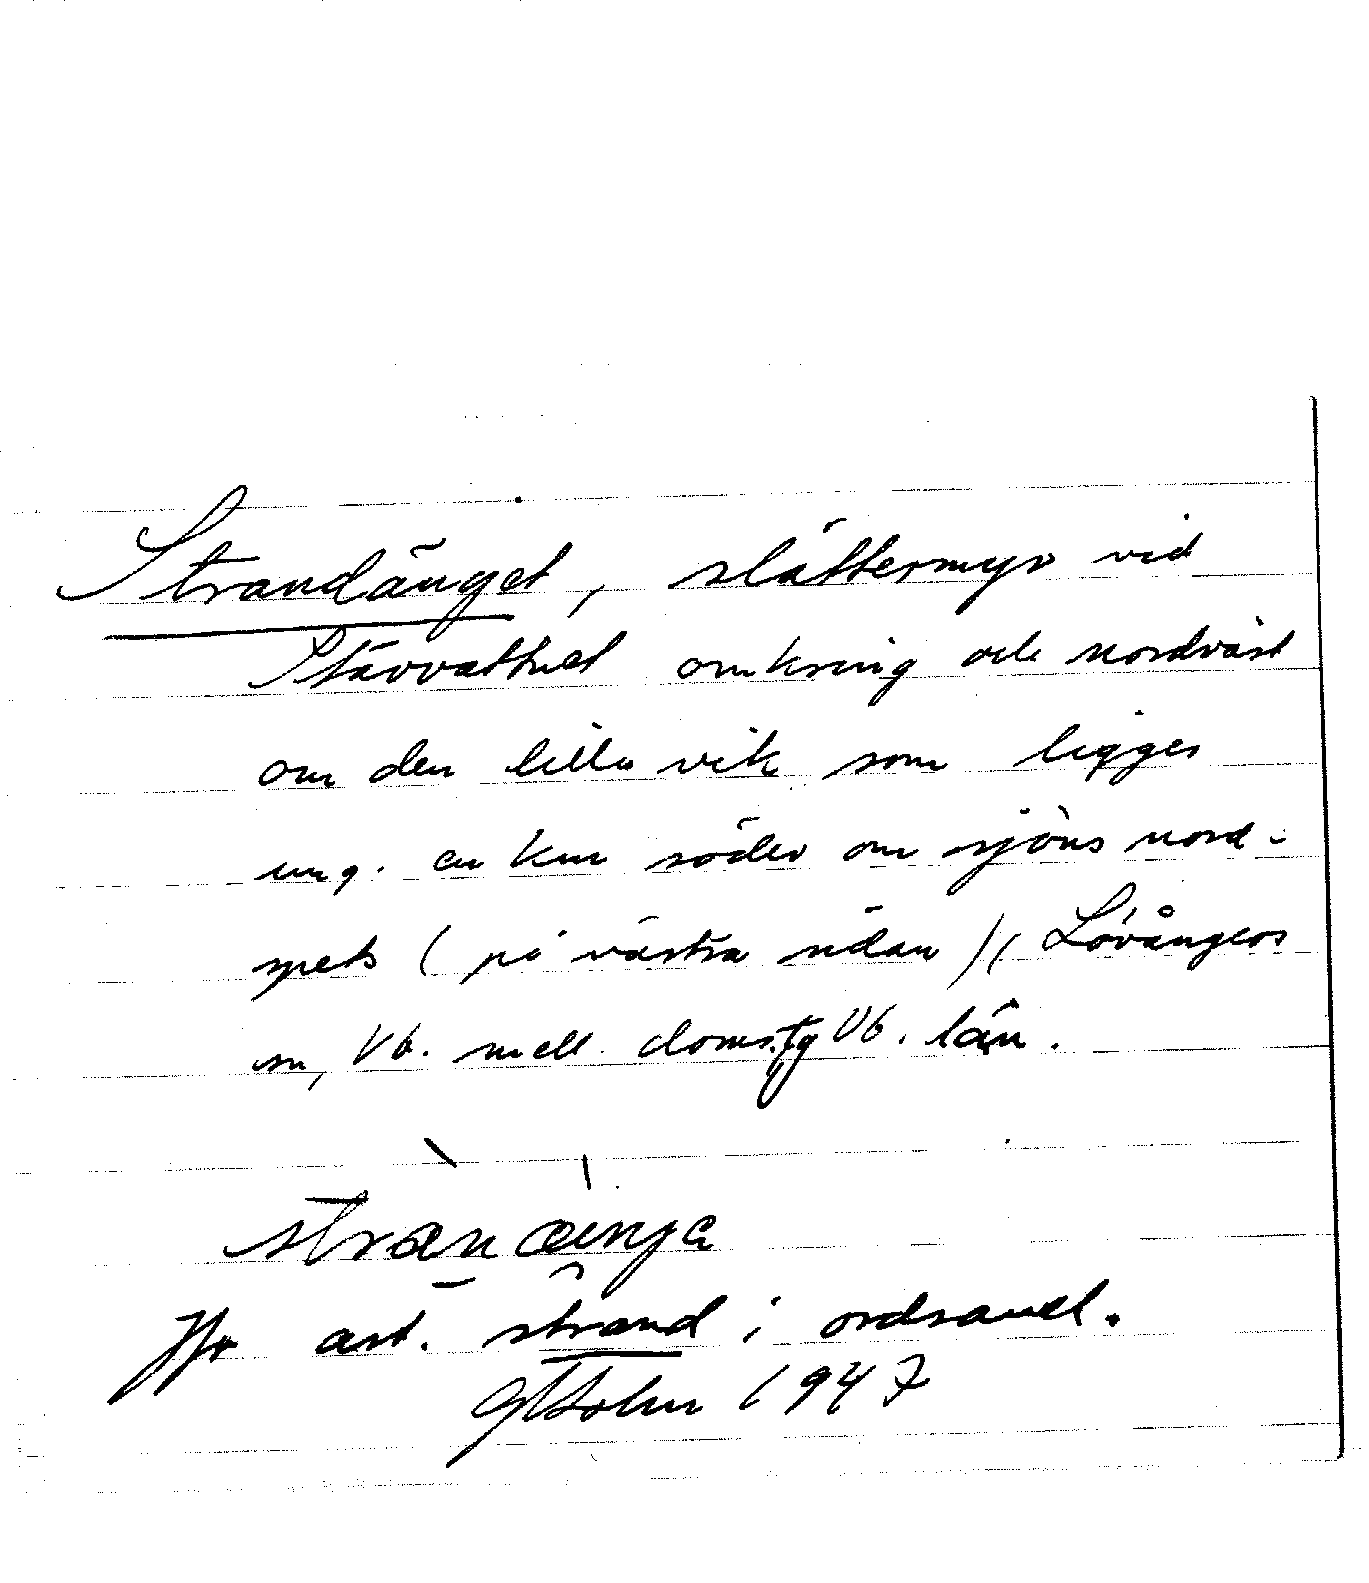 Strandänget, slåttermyr vid
Stavvattnet omkring och nordväst
om den lilla vik som ligger
ung. en km söder om sjöns nord-
spets (på västra sidan) (Lövångers
sn, Vb. mell. doms.tg Vb. län.
Jfr art. strand i ordsaml.
GHolm 1947